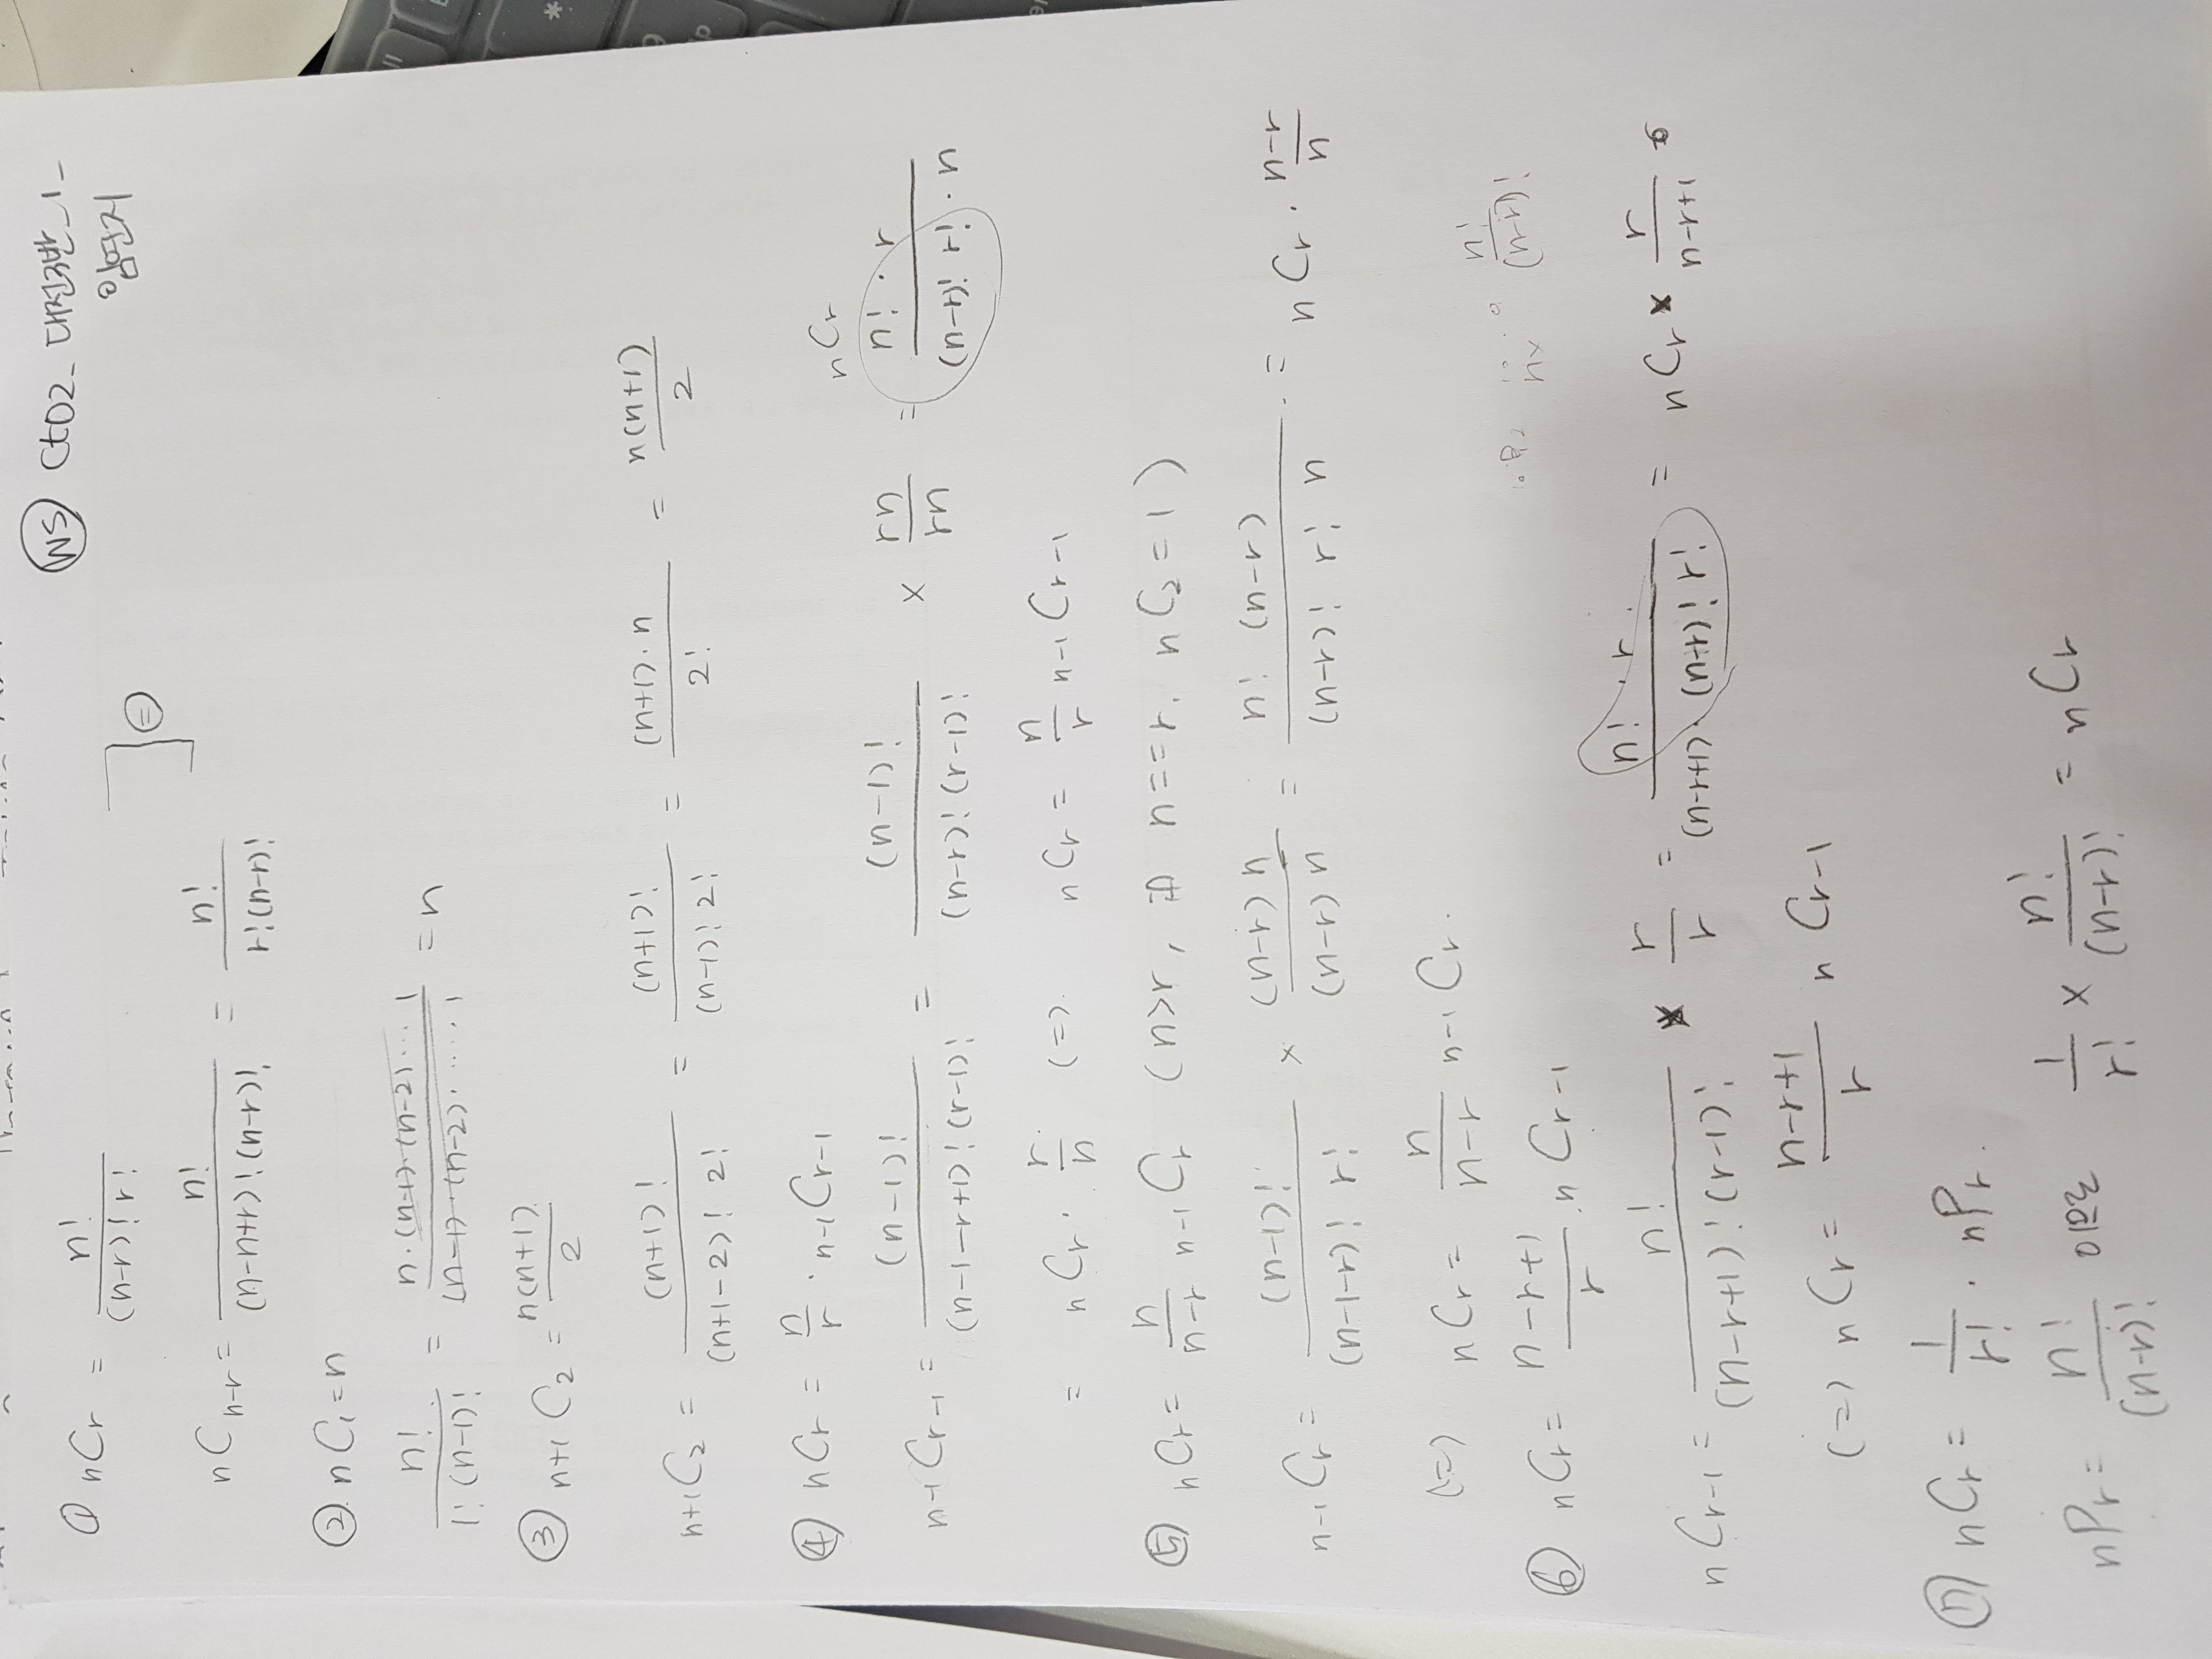 WS Ct02_대전3반_1_
임연지
① nCr = n! / (n-r)! r!
nCn-r = n! / (n-n+r)! (n-r)! = n! / r! (n-r)!
=
② nC1 = n
n! / 1! (n-1)! = n·(n-1)·(n-2)··· 1 / (n-1)·(n-2)·····1 = n
③ n+1C2 = n(n+1) / 2
n+1C2 = (n+1)! / (n+1-2)! 2! = (n+1)! / (n-1)! 2! = (n+1)·n / 2! = n(n+1) / 2
④ nCr = n/r · n-1Cr-1
nCr
n-1Cr-1 = (n-1)! / (n-1-r+1)! (r-1)! = (n-1)! / (n-r)! (r-1)! × rn/rn = n!·r / (n-r)! r!·n
= nCr · r/n (=) nCr = n/r n-1Cr-1
⑤ nCr = n/n-r n-1Cr (n>r, if n==r. nC2=1)
n-1Cr = (n-1)! / (n-1-r)! r! × (n-r) n / (n-r) n = n! (n-r) / (n-r)! r! n = nCr · n-r/n
(=) nCr = n/n-r n-1Cr.
n! / (n-r)!
⑥ nCr = n-r+1 / r nCr-1
nCr-1 = n! / (n-r+1)! (r-1)! × r/r = n!·r / (n-r+1)·(n-r)! r! = nCr × r / n-r+1
(=) nCr = n-r+1 / r nCr-1
⑦ nCr = 1/r! · nPr.
nPr = n! / (n-r)! 이므로 1/r! × n! / (n-r)! = nCr